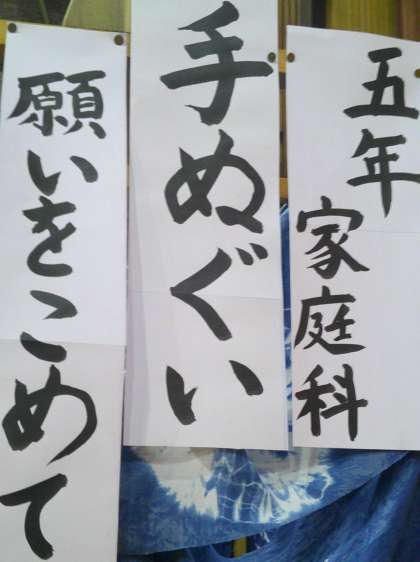 五年
家庭科
手ぬぐい
願いをこめて